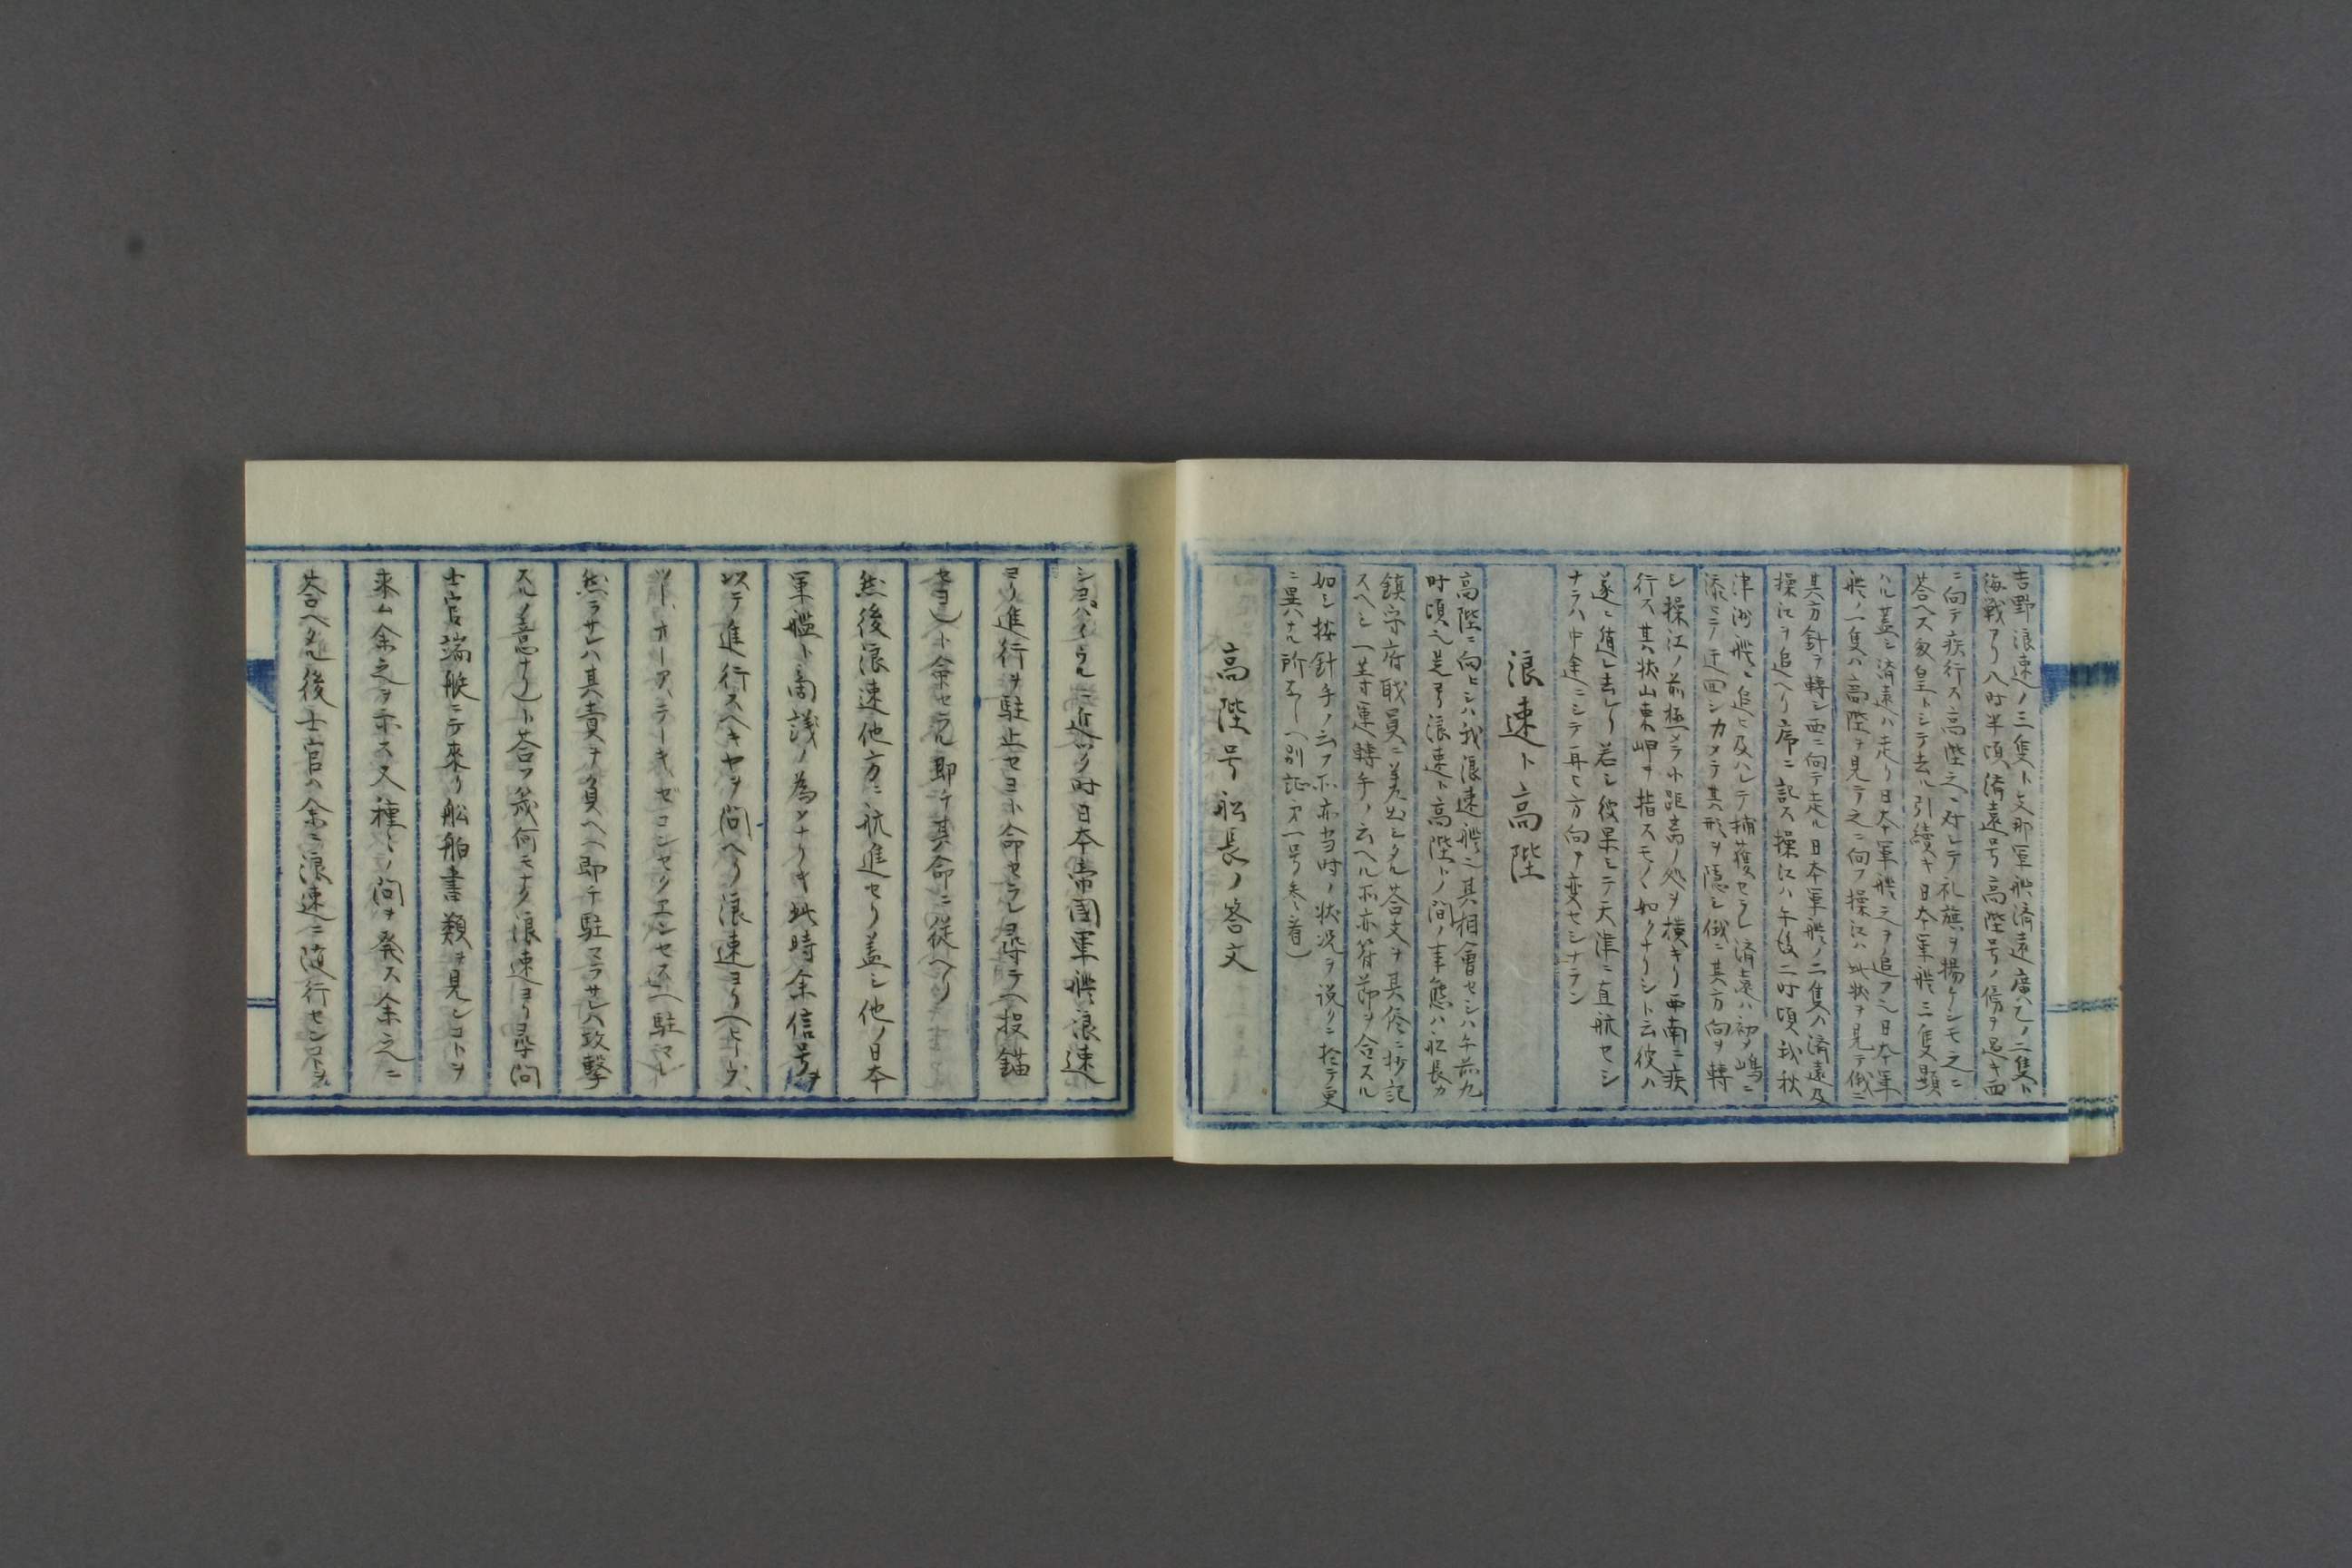 吉野浪速ノ三隻ト支那軍艦済遠廣乙ノ二隻ト
海戦アリ八时半頃済遠号高陞号ノ傍ヲ過キ西
ニ向テ疾行ス高陞之ニ对シテ礼旗ヲ揚ケシモ之ニ
荅ヘス匆皇トシテ去ル引續キ日本軍艦三隻顕
ハル蓋シ済遠ハ走リ日本軍艦之ヲ追フ也日本軍
艦ノ一隻ハ高陞ヲ見テ之ニ向フ操江ハ此状ヲ見テ俄ニ
其方針ヲ轉シ西ニ向テ走ル日本軍艦ノ二隻ハ済遠及
操江ヲ追ヘリ席ニ記ス操江ハ午後二时頃我秋
津洲艦ニ追ヒ及ハレテ捕獲セラレ済遠ハ初メ嶋ニ
添ヒテ迂回シカメテ其形ヲ隠シ俄ニ其方向ヲ轉
シ操江ノ前極メテ小距离ノ処ヲ横キリ西南ニ疾
行ス其状山東岬ヲ指スモノヽ如クナリシト云彼ハ
遂ニ遁レ去レリ若シ彼果シテ天津ニ直航セシ
ナラハ中途ニシテ再ヒ方向ヲ変セシナラン
浪速ト高陞
高陞ニ向ヒシハ我浪速艦ニ其相會セシハ午前九
时頃也是ヨリ浪速ト高陞トノ間ノ事態ハ舩長カ
鎮守府職員ニ差出シタル荅文ヲ其侭ニ抄記
スヘシ一等運轉手ノ云ヘル所亦符節ヲ合スル
如シ按針手ノ云フ所亦当时ノ状况ヲ説クニ於テ更
ニ異ハナル所ナシ(別記才一号参着)
高陞号舩長ノ答文
シヨパイウルニ近ツク时日本帝國軍艦浪速
ヨリ進行ヲ駐止セヨト命セラレ尋テ(投錨
セヨ)ト命セラル即チ其命ニ從ヘリ
然後浪速他方ニ航進セリ蓋シ他ノ日本
軍艦ト商議ノ為メナリキ此時余信号ヲ
以テ進行スヘキヤヲ問ヘリ浪速ヨリ(ヒーヴ、
ツー、オーア、テーキ、ゼコンセクエンセス」(駐マレ
然ラサレハ其責ヲ負ヘ(即チ駐マラサレハ攻撃
スルノ意ナリ)ト荅フ幾何モナク浪速ヨリ尋問
士官端艇ニテ來リ舩舶書類ヲ見ンコトヲ
来ム余之ヲ示ス又種々ノ問ヲ発ス余之ニ
荅ヘタル後士官ハ余ニ浪速ニ随行センコトヲ